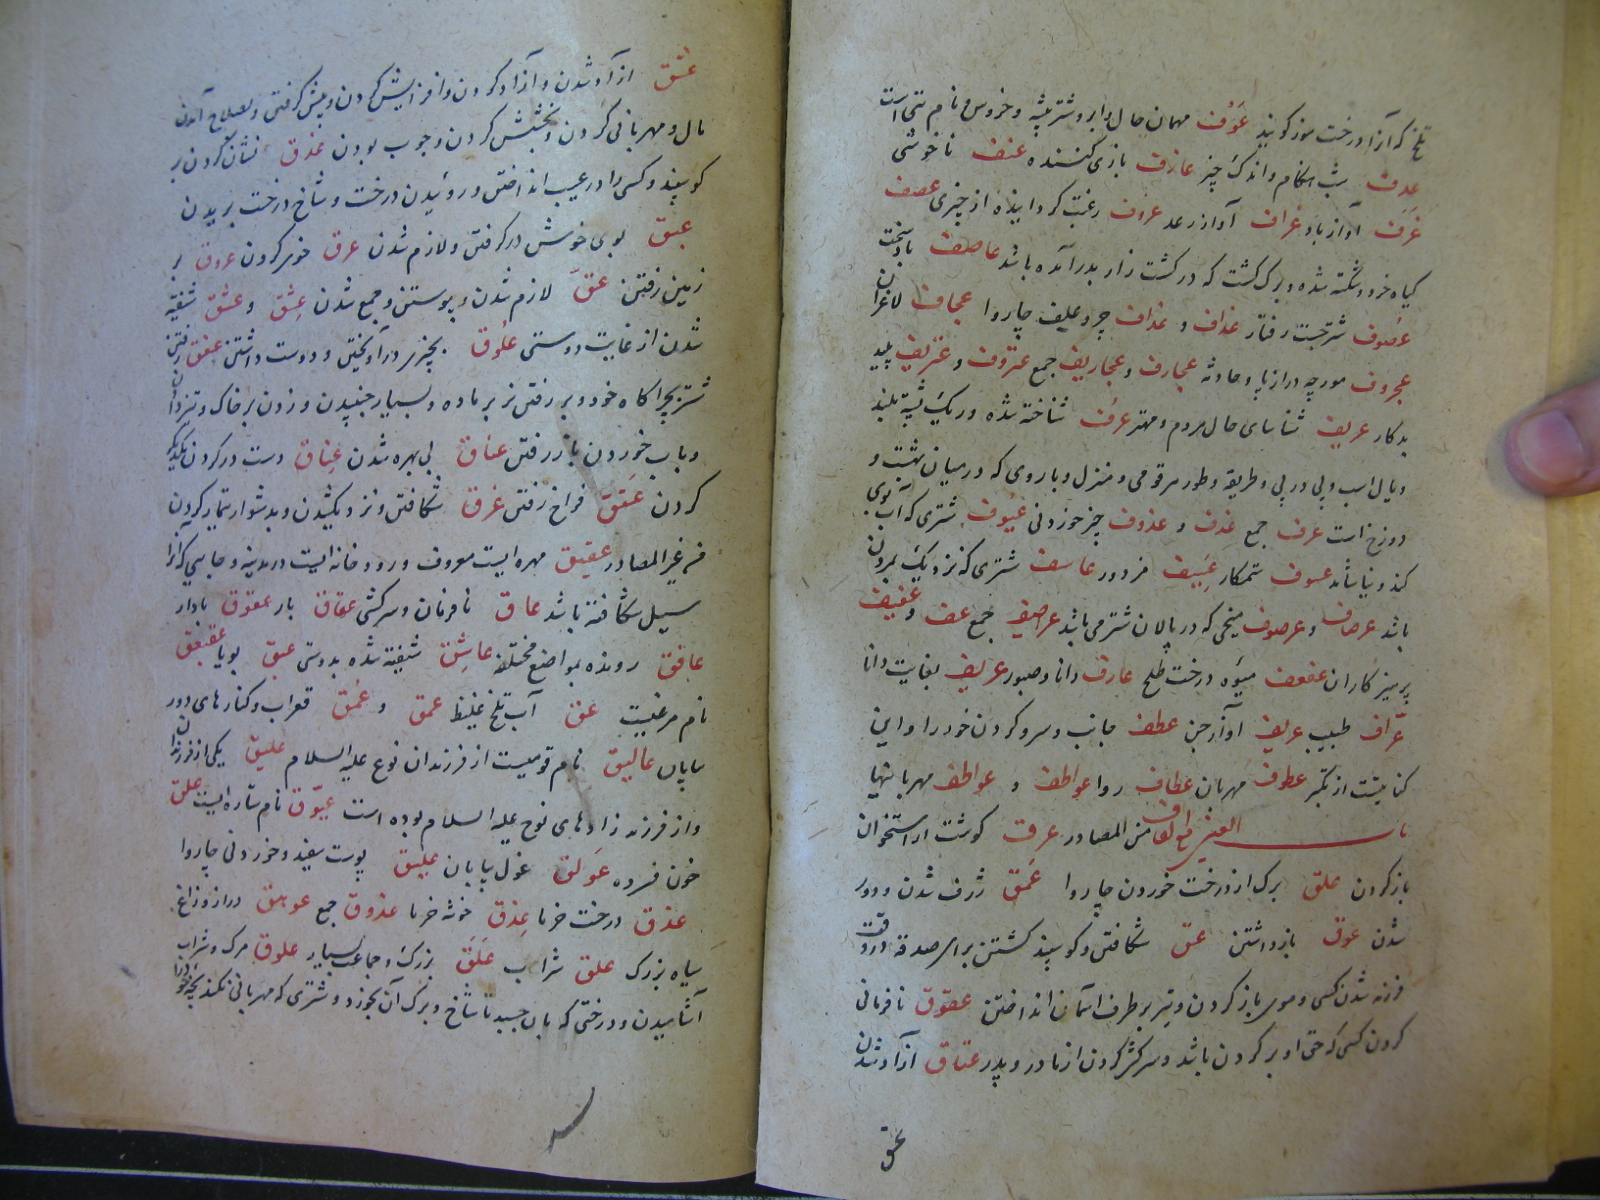 تلخ که آنرا درخت موز کویند عَوْف مهمان حال و ابر و شتر بیشه و خروس و نام بتی است
عدف شب هنکام و اندک چیز عازف بازی کننده عنف ناخوشی
عزف آواز باد عزاف آواز رعد عزوف رغبت کرداننده از چیزی عصف
کیاه خرد و شکسته شده و برک کشت که در کشت زار بدر آمده باشد عاصف باد سخت
عصوف شتر جست رفتار عداف و عذاف چر و علیف چاروا عجاف لاغران
عجروف مورچه دراز پا و حادثه عجارف و عجاریف جمع عتروف و عتریف پلید
بدکار عریف شناسای حال مردم و مهتر عرف شناخته شده و ریک پشته بلند
و یال اسب و پی در پی و طریقه و طور مرقومی و منزل و باروی که در میان بهشت و
دوزخ است عرف جمع عدف و عذوف چیز خوردنی عیوف شتری که آب بوی
کند و نیاشامد عسوف ستمکار عسیف مزدور عاسف شتری که نزدیک بمردن
باشد عرصاف و عرصوف میخی که در پالان شتر می باشد عراصیف جمع عف و عفیف
پرهیز کاران عفعف میوه درخت طلح عارف دانا و صبور عریف بغایت دانا
عرّاف طبیب عزیف آواز جن عطف جانب و سرو کردن خود را و این
کنایتست از تکبر عطوف مهربان عطاف روا عواطف و عواطف مهربانیها
باب العین مع القاف من المصادر عرق کوشت از استخوان
باز کردن علق برک از درخت خوردن چاروا عمق ژرف شدن و دور
شدن عوق بازداشتن عق شکافتن و کوسپند کشتن برای صدقه در وقت
فرزند شدن کسی و موی باز کردن و تیر بر طرف آسمان انداختن عقوق نافرمانی
کردن کسی که حق او بر کردن باشد و سرکشی کردن از مادر و پدر عتاق آزاد شدن
عتق
عتق آزاد شدن و آزاد کردن و افزایش کردن و پیش کرفتن و بصلاح آمدن
مال و مهربانی کردن و بخشش کردن و خوب بودن عذق نشان کردن بر
کوسپند و کسی را در عیب انداختن و روئیدن درخت و شاخ درخت بریدن
عبق بوی خوش در کرفتن و لازم شدن عرق خوی کردن عروق بر
زمین رفتن عسق لازم شدن و پیوستن و جمع شدن عِشق و عشق شیفته
شدن از غایت دوستی علوق بچیزی در آویختن و دوست داشتن عفق رفتن
شتر بچراکاه خود و بر رفتن نر بر ماده و بسیار جنبیدن و زدن بر خاک و تیز دادن
و باب خوردن باز رفتن عناق بی بهره شدن عِناق دست در کردن یکدیکر
کردن عَنَق فراخ رفتن عزق شکافتن و نزدیک شدن و بدشوار تیمار کردن
من غیر المصادر عقیق مهره ایست معروف و رودخانه ایست در مدینه و جایی که آنرا
سیل شکافته باشد عاق نافرمان و سرکش عقاق بار عقوق باردار
عافق رونده بمواضع مختلفه عاشِق شیفته شده بدوستی عبق بویا عقعق
نام مرغیست عق آب تلخ غلیظ عمق و عُمق قعر آب و کنارهای دور
بیابان عمالیق نام قومیست از فرزندان نوح علیه السلام عملیق یکی از فرزندان
و از فرزند زادهای نوح علیه السلام بوده است عیّوق نام ستاره ایست علق
خون فسرده عَولق غول بیابان علیق پوست سفید و خوردنی چاروا
عذق درخت خرما عِذق خوشه خرما عذوق جمع عوهق دراز و زاغ
سیاه بزرک علق شراب عَلَق بزرک و جماعت بسیار علوق مرک و شراب
آشامیدن و درختی که بان چسبد تا شاخ و برک آن بخورد و شتری که مهربانی نکند بچه خود را